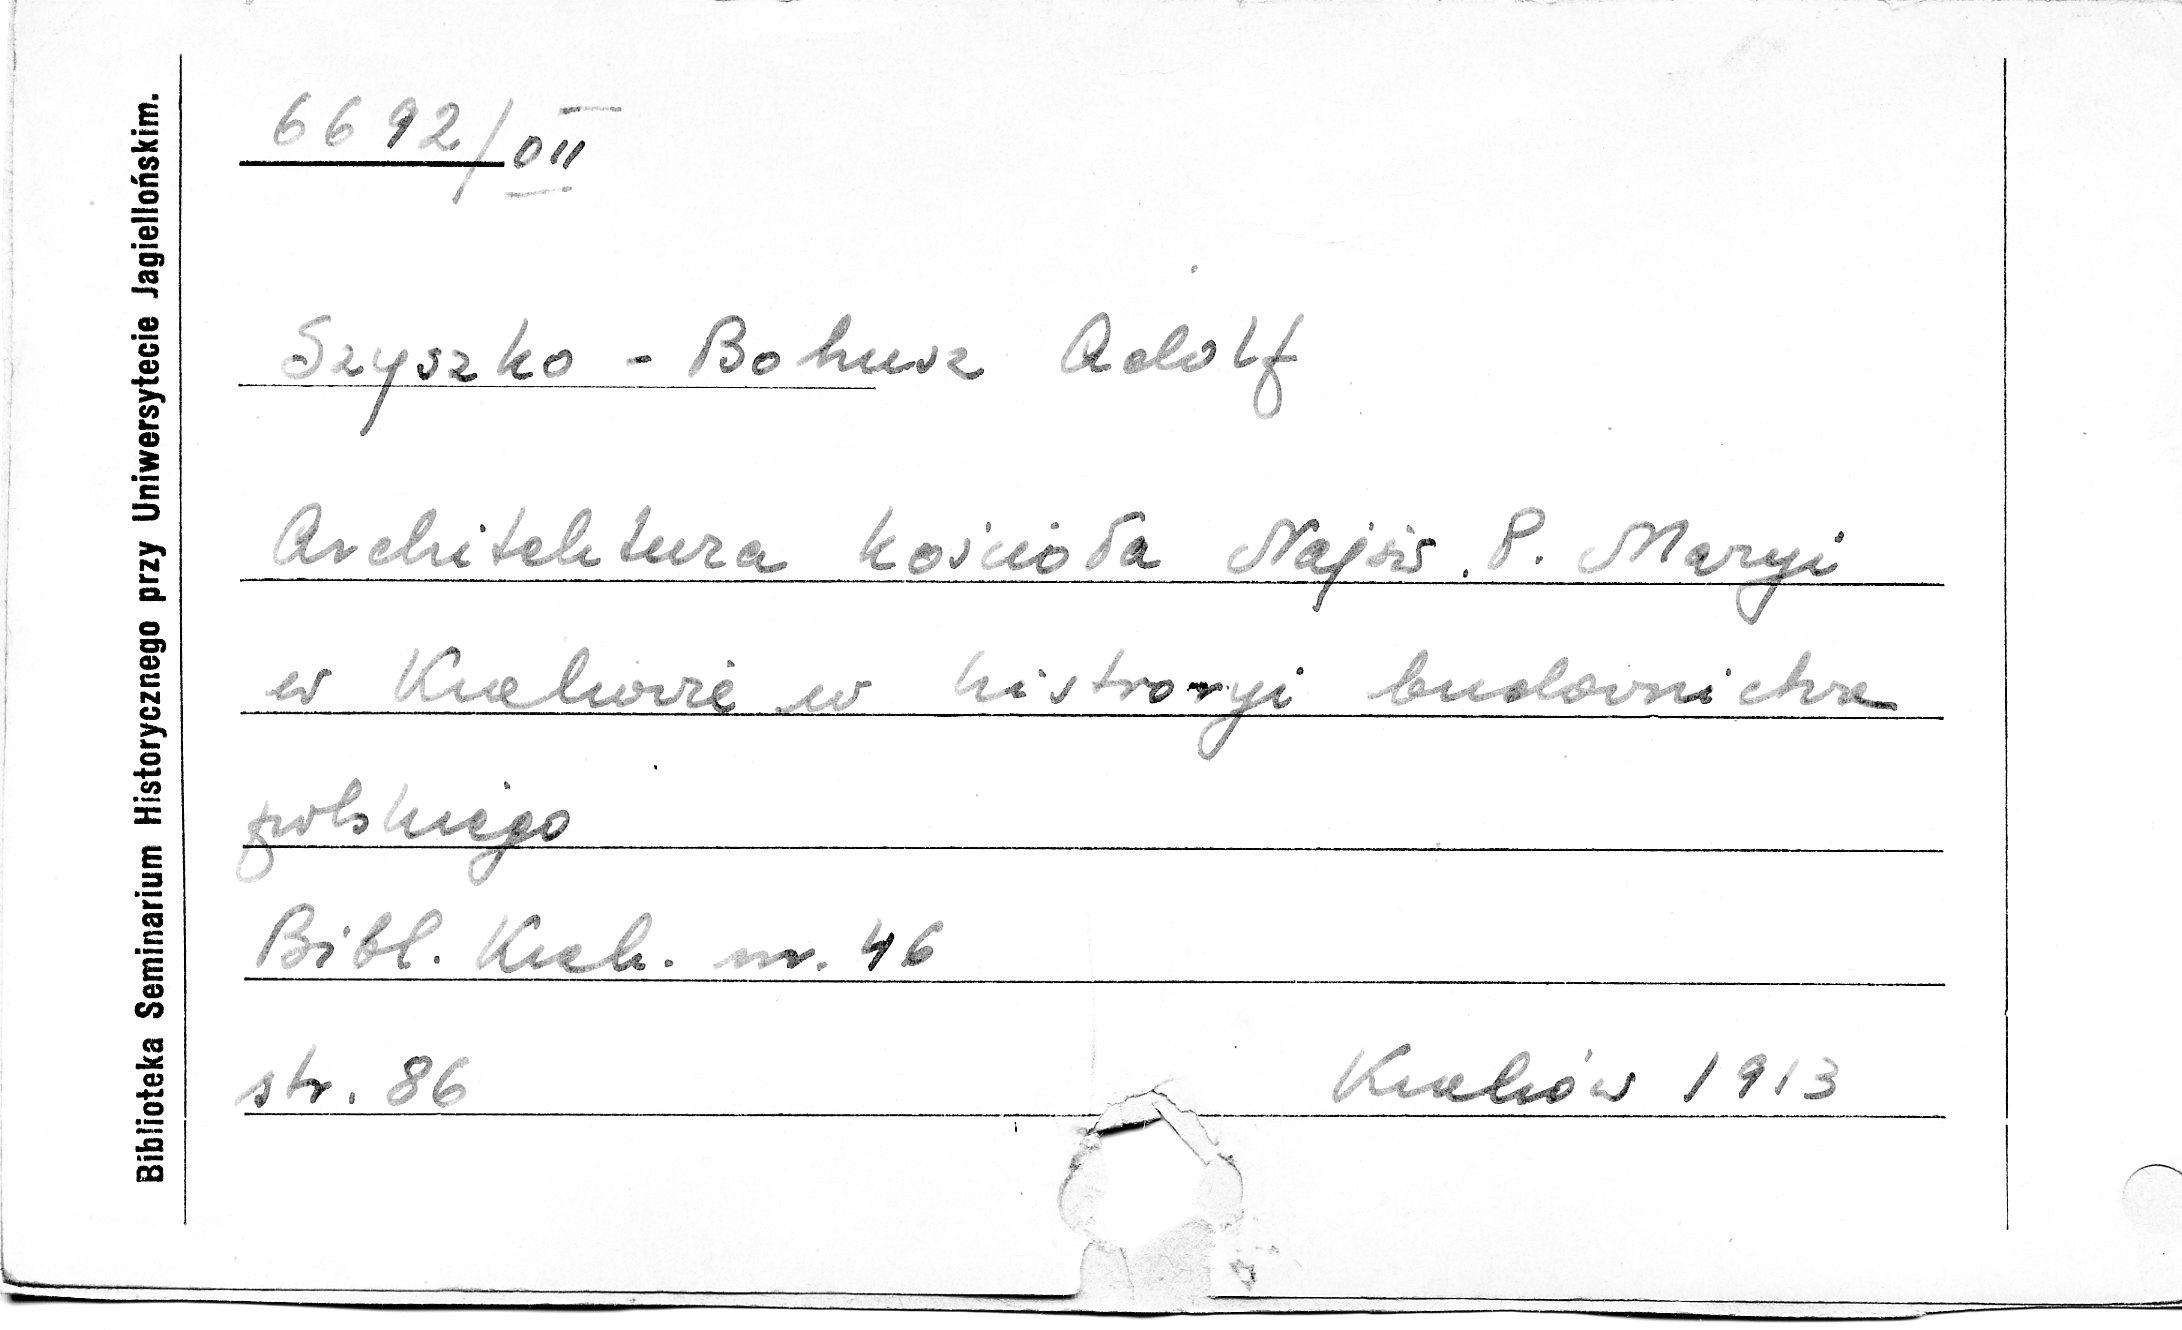 Biblioteka Seminarium Historycznego przy Uniwersytecie Jagiellońskim.
6692/VII
Szyszko - Bohusz Adolf
Architektura kościoła Najśw. P. Maryi
w Krakowie w historyi budownictwa
polskiego
Bibl. Krak. nr. 46
str. 86 Kraków 1913